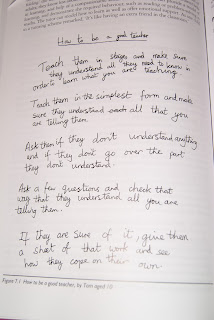 How to be a good teacher
Teach them in stages and make sure
they understand all they need to know in
order to learn what you are teaching.
Teach them in the simplest form and make
sure they understand all that you
are telling them.
Ask them if they don't understand anything
and if they don't go over the part
they dont understand.
Ask a few questions and check that
way that they understand all you are
telling them.
If they are sure of it, give them
a sheet of that work and see
how they cope on their own
Figure 7.1 How to be a good teacher, by Tom aged 10